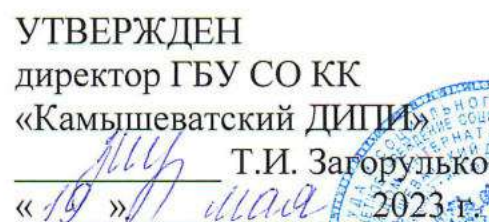 УТВЕРЖДЕН
директор ГБУ СО КК
«Камышеватский ДИПИ»
Т.И. Загорулько
« 19 » мая 2023 г.